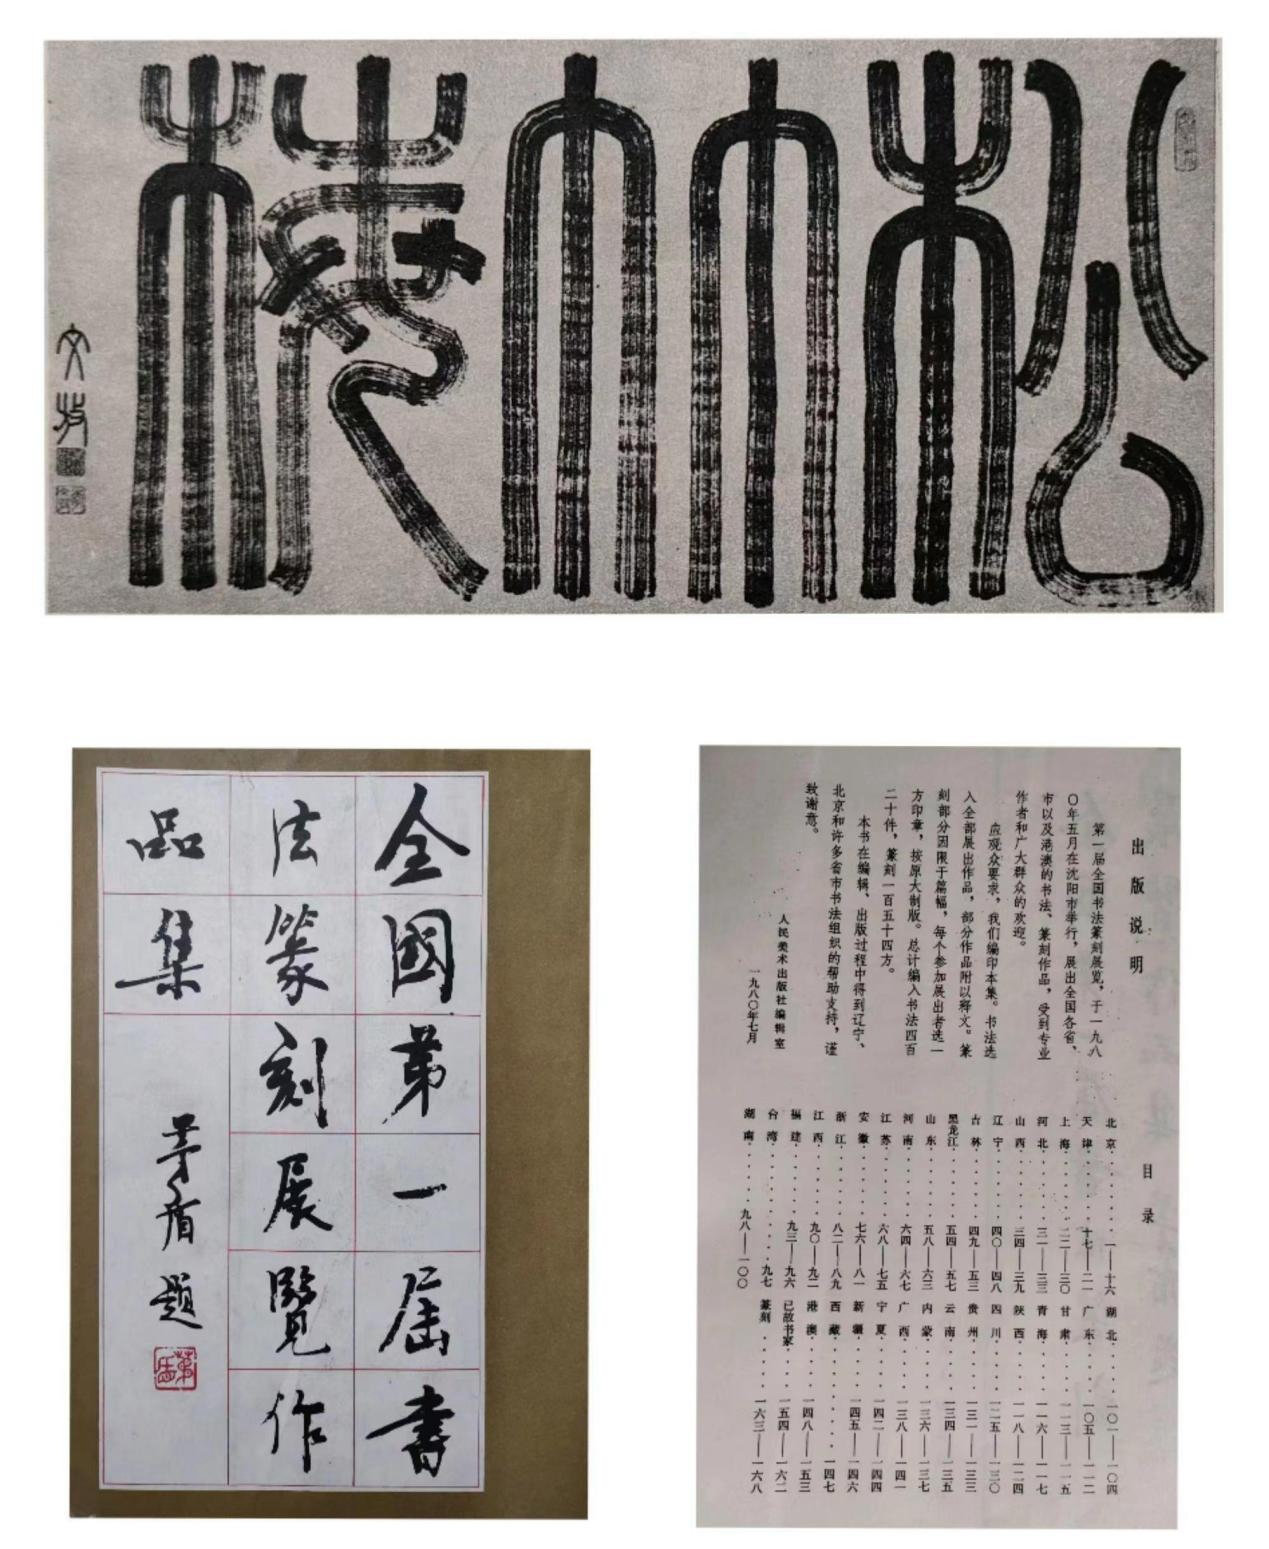 松竹梅
文
全國第一屆書
法篆刻展覽作
品集
茅盾題
出版说明
第一届全国书法篆刻展览，于一九八
〇年五月在沈阳市举行，展出全国各省、
市以及港澳的书法、篆刻作品，受到专业
作者和广大群众的欢迎。
应观众要求，我们编印本集。书法选
入全部展出作品，部分作品附以释文。篆
刻部分因限于篇幅，每个参加展出者选一
方印章，按原大制版。总计编入书法四百
二十件，篆刻一百五十四方。
本书在编辑、出版过程中得到辽宁、
北京和许多省市书法组织的帮助支持，谨
致谢意。
人民美术出版社编辑室
一九八〇年七月
目录
北京········一——十六
天津········十七——二一
上海········二二——三〇
河北········三一——三三
山西········三四——三九
辽宁········四〇——四八
吉林········四九——五三
黑龙江········五四——五七
山东········五八——六三
河南········六四——六七
江苏········六八——七五
安徽········七六——八一
浙江········八二——八九
江西········九〇——九二
福建········九三——九六
台湾········九七
湖南········九八——一〇〇
湖北······一〇一——一〇四
广东······一〇五——一一二
甘肃······一一三——一一五
青海······一一六——一一七
陕西······一一八——一二四
四川······一二五——一三〇
贵州······一三一——一三三
云南······一三四——一三五
内蒙······一三六——一三七
广西······一三八——一四一
宁夏······一四二——一四四
新疆······一四五——一四六
西藏······一四七
港澳······一四八——一五三
已故书家······一五四——一六二
篆刻······一六三——一六八